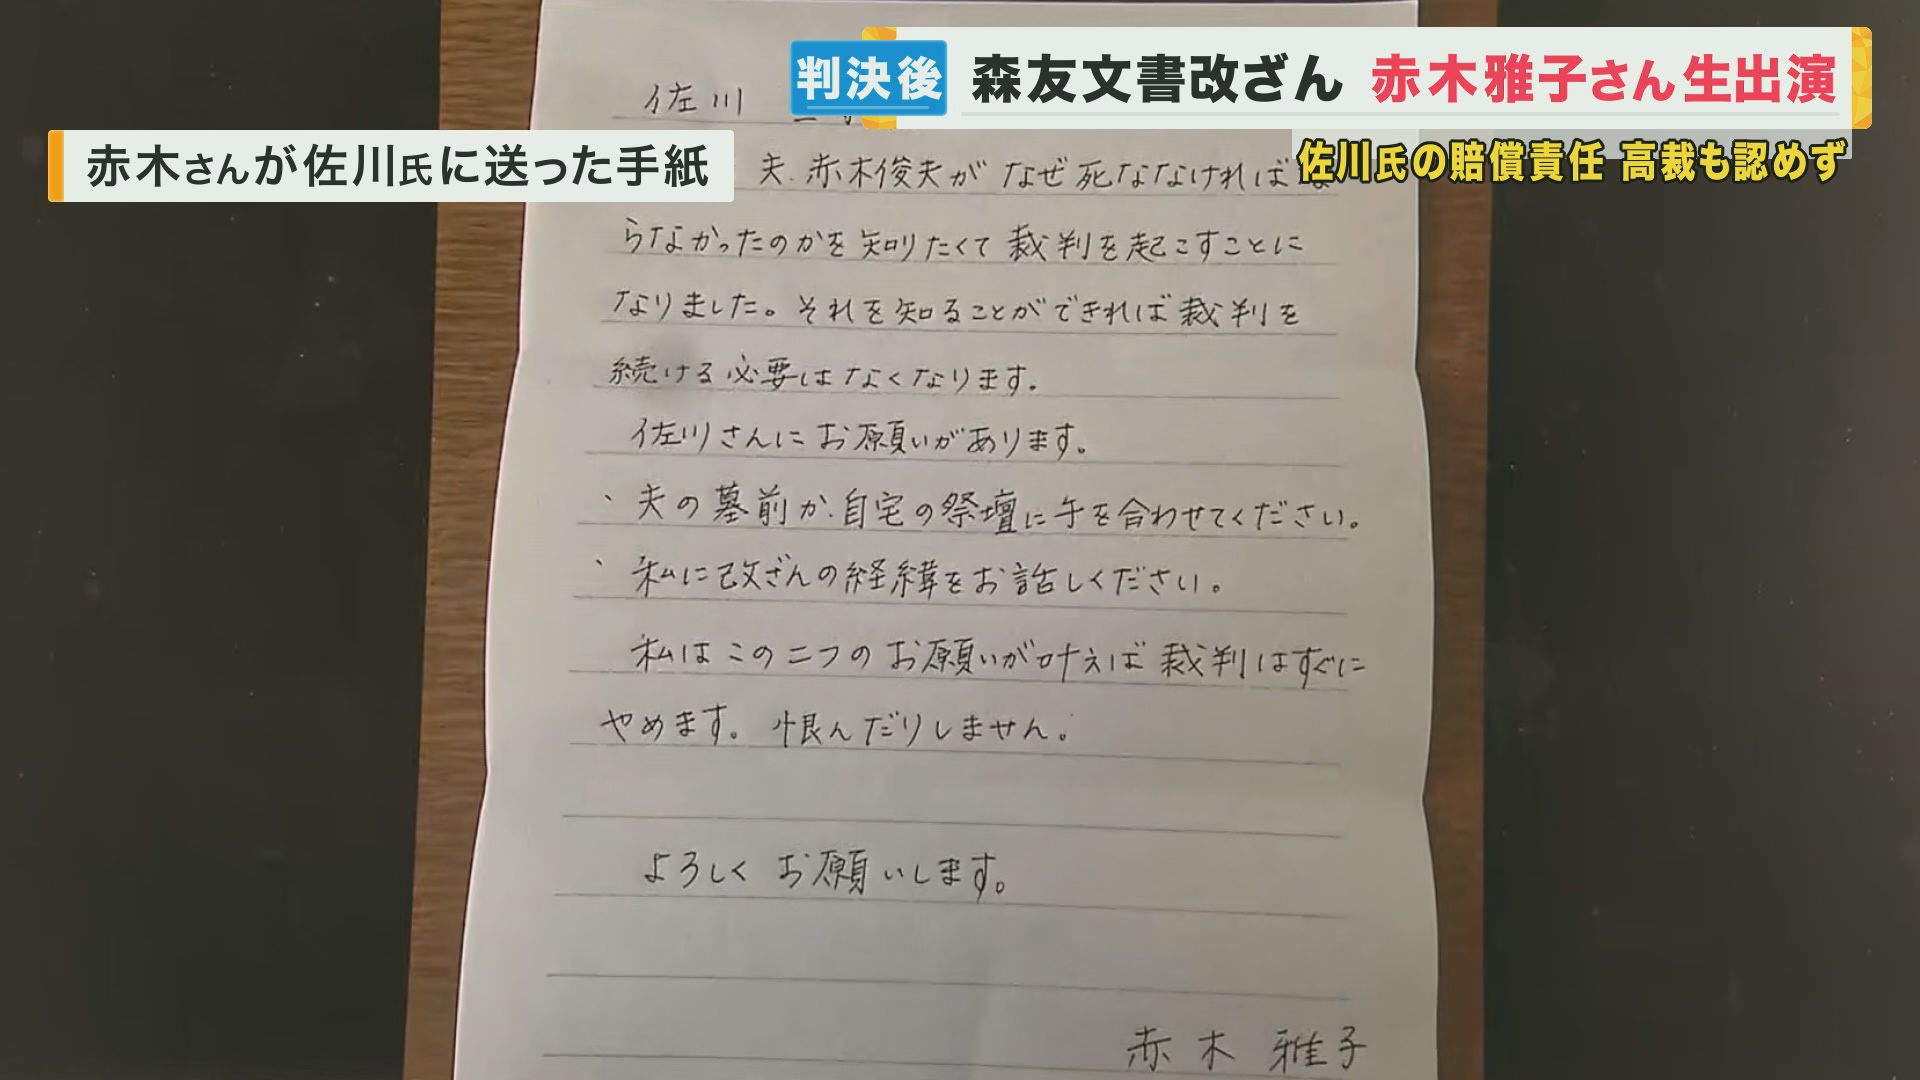 判決後
森友文書改ざん 赤木雅子さん生出演
佐川氏の賠償責任 高裁も認めず
赤木さんが佐川氏に送った手紙
佐川
夫、赤木俊夫が なぜ死ななければ
らなかったのかを知りたくて裁判を起こすことに
なりました。それを知ることができれば裁判を
続ける必要はなくなります。
佐川さんにお願いがあります。
、夫の墓前か、自宅の祭壇に手を合わせてください。
、私に改ざんの経緯をお話しください。
私はこの二つのお願いが叶えば裁判はすぐに
やめます。恨んだりしません。
よろしくお願いします。
赤木 雅子